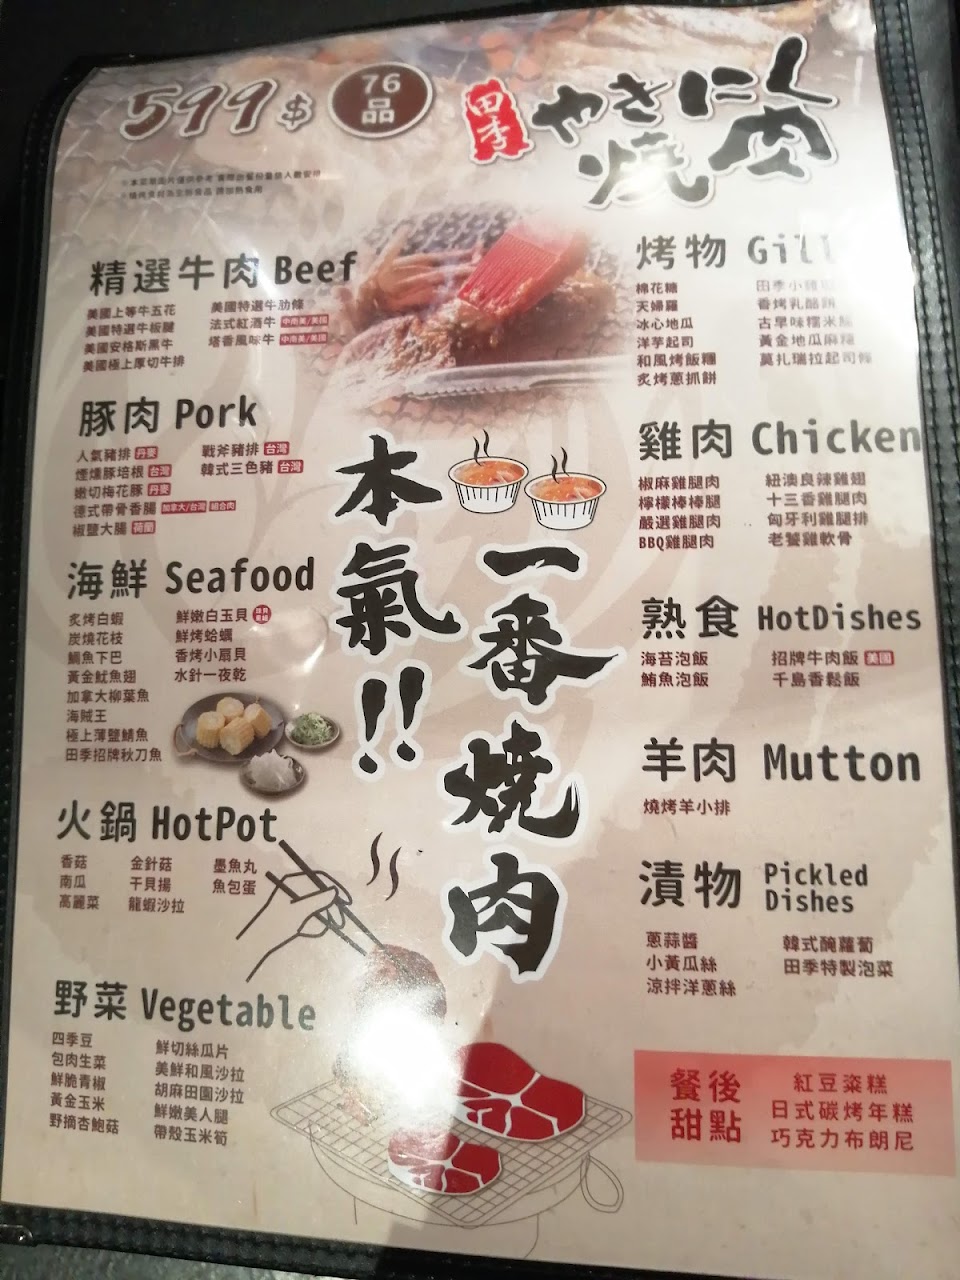 599$
76品
田季
やきにく
燒肉
精選牛肉 Beef
美國上等牛五花
美國特選牛板腱
美國安格斯黑牛
美國極上厚切牛排
美國特選牛肋條
法式紅酒牛 中南美/美國
塔香風味牛 中南美/美國
豚肉 Pork
人氣豬排 丹麥
煙燻豚培根 台灣
嫩切梅花豚 丹麥
德式帶骨香腸 加拿大/台灣 組合肉
椒鹽大腸 荷蘭
戰斧豬排 台灣
韓式三色豬 台灣
海鮮 Seafood
炙烤白蝦
炭燒花枝
鯛魚下巴
黃金魷魚翅
加拿大柳葉魚
海賊王
極上薄鹽鯖魚
田季招牌秋刀魚
鮮嫩白玉貝
鮮烤蛤蠣
香烤小扇貝
水針一夜乾
火鍋 HotPot
香菇
南瓜
高麗菜
金針菇
干貝揚
龍蝦沙拉
墨魚丸
魚包蛋
野菜 Vegetable
四季豆
包肉生菜
鮮脆青椒
黃金玉米
野摘杏鮑菇
鮮切絲瓜片
美鮮和風沙拉
胡麻田園沙拉
鮮嫩美人腿
帶殼玉米筍
本氣!!
一番燒肉
烤物 Gill
棉花糖
天婦羅
冰心地瓜
洋芋起司
和風烤飯糰
炙烤蔥抓餅
田季小雞
香烤乳酪餅
古早味糯米腸
黃金地瓜麻糬
莫扎瑞拉起司條
雞肉 Chicken
椒麻雞腿肉
檸檬棒棒腿
嚴選雞腿肉
BBQ雞腿肉
紐澳良辣雞翅
十三香雞腿肉
匈牙利雞腿排
老饕雞軟骨
熟食 HotDishes
海苔泡飯
鮪魚泡飯
招牌牛肉飯 美國
千島香鬆飯
羊肉 Mutton
燒烤羊小排
漬物 Pickled Dishes
蔥蒜醬
小黃瓜絲
涼拌洋蔥絲
韓式醃蘿蔔
田季特製泡菜
餐後甜點
紅豆粢糕
日式碳烤年糕
巧克力布朗尼